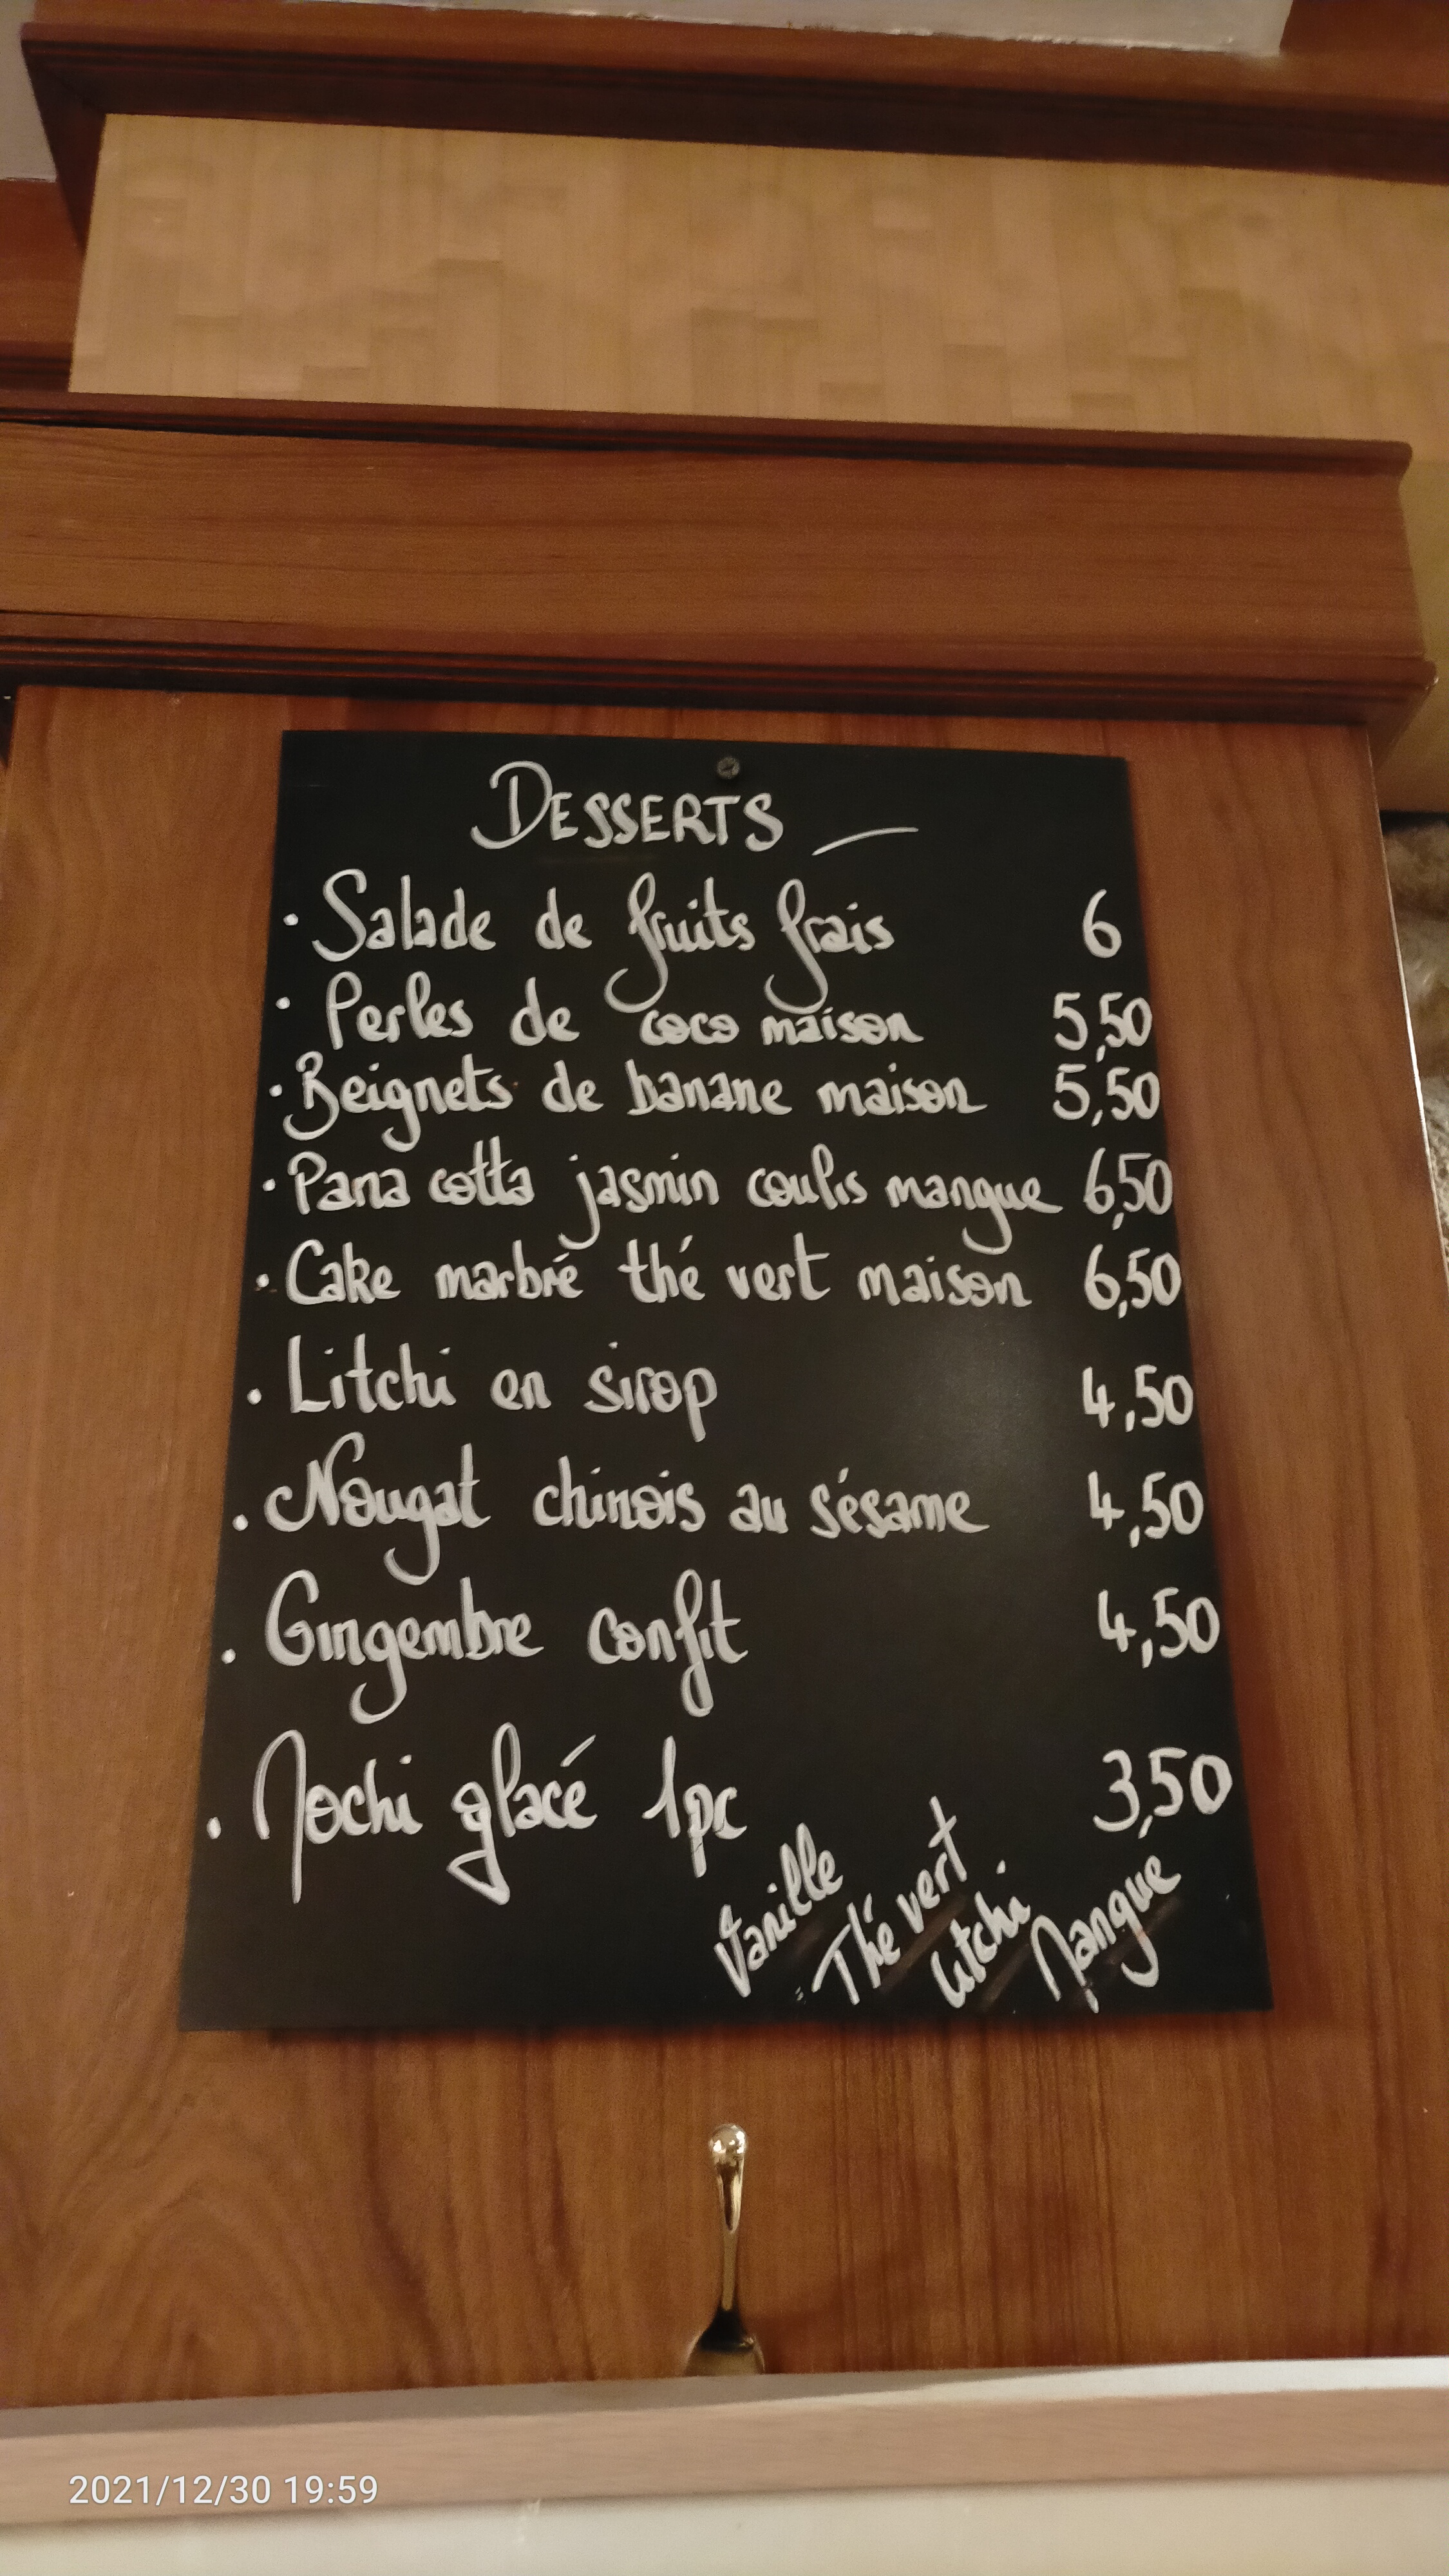 DESSERTS
· Salade de fruits frais 6
· Perles de coco maison 5,50
· Beignets de banane maison 5,50
· Pana cotta jasmin coulis mangue 6,50
· Cake marbré thé vert maison 6,50
· Litchi en sirop 4,50
· Nougat chinois au sésame 4,50
· Gingembre confit 4,50
· Mochi glacé 1pc 3,50
Vanille
Thé vert
Litchi
Mangue
2021/12/30 19:59